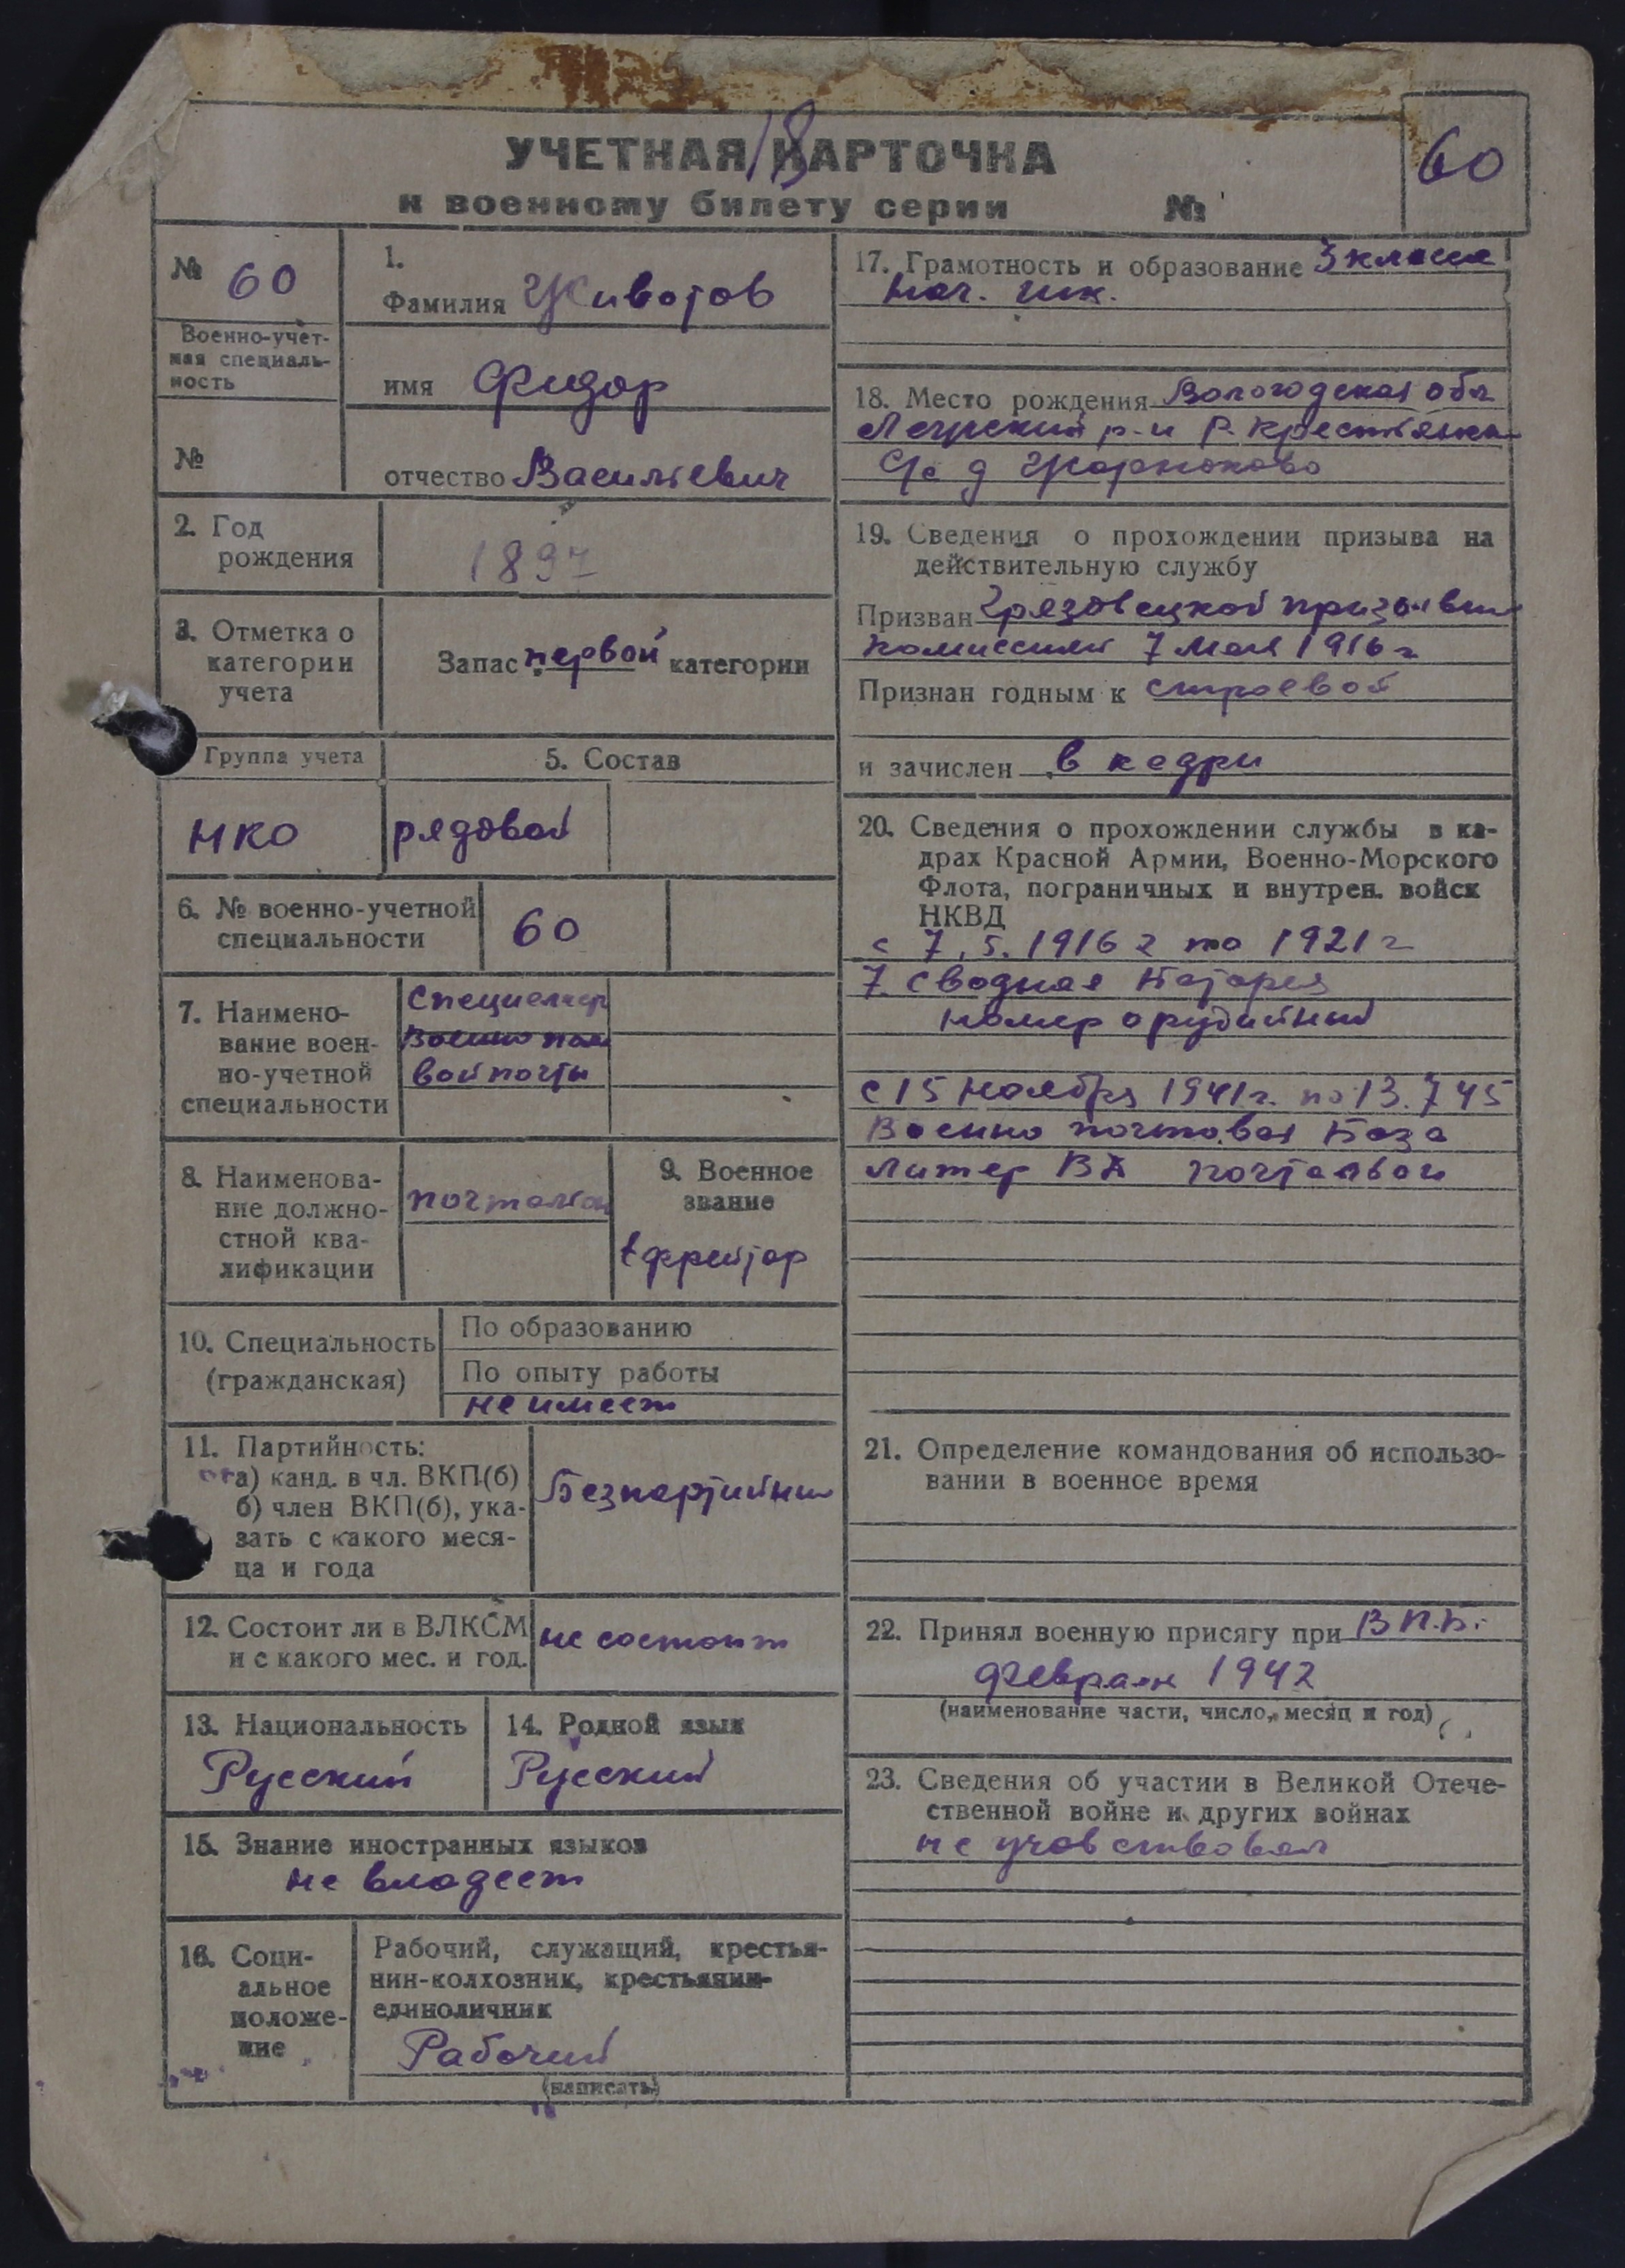 УЧЕТНАЯ КАРТОЧКА
18
60
к военному билету серии №
№ 60
Военно-учет-
ная специаль-
ность
№
1.
Фамилия Животов
имя Фидор
отчество Васильевич
2. Год
рождения
1897
3. Отметка о
категории
учета
Запас первой категории
Группа учета
НКО
5. Состав
рядовой
6. № военно-учетной
специальности
60
7. Наимено-
вание воен-
но-учетной
специальности
Специалист
Военно поле
вой почты
8. Наименова-
ние должно-
стной ква-
лификации
почтальон
9. Военное
звание
Ефрейтор
10. Специальность
(гражданская)
По образованию
По опыту работы
не имеет
11. Партийность:
а) канд. в чл. ВКП(б)
б) член ВКП(б), ука-
зать с какого меся-
ца и года
Безпартийный
12. Состоит ли в ВЛКСМ
и с какого мес. и год.
не состоит
13. Национальность
Русский
14. Родной язык
Русский
15. Знание иностранных языков
не владеет
16. Соци-
альное
положе-
ние
Рабочий, служащий, крестья-
нин-колхозник, крестьянин-
единоличник
Рабочий
(написать)
17. Грамотность и образование 3 класса
нач. шк.
18. Место рождения Вологодская обл
р-н Р. Крестьянки
С/с д
19. Сведения о прохождении призыва на
действительную службу
Призван Грязовецкой призывн
комиссией 7 мая 1916 г
Признан годным к строевой
и зачислен в кадры
20. Сведения о прохождении службы в ка-
драх Красной Армии, Военно-Морского
Флота, пограничных и внутрен. войск
НКВД
с 7.5.1916 г по 1921 г
7. Сводная Батарея
номер орудийный
с 15 ноября 1941 г. по 13.7 45
Военно почтовая База
литер ВА почтальон
21. Определение командования об использо-
вании в военное время
22. Принял военную присягу при В.П.Б.
февраль 1942
(наименование части, число, месяц и год)
23. Сведения об участии в Великой Отече-
ственной войне и других войнах
не участвовал